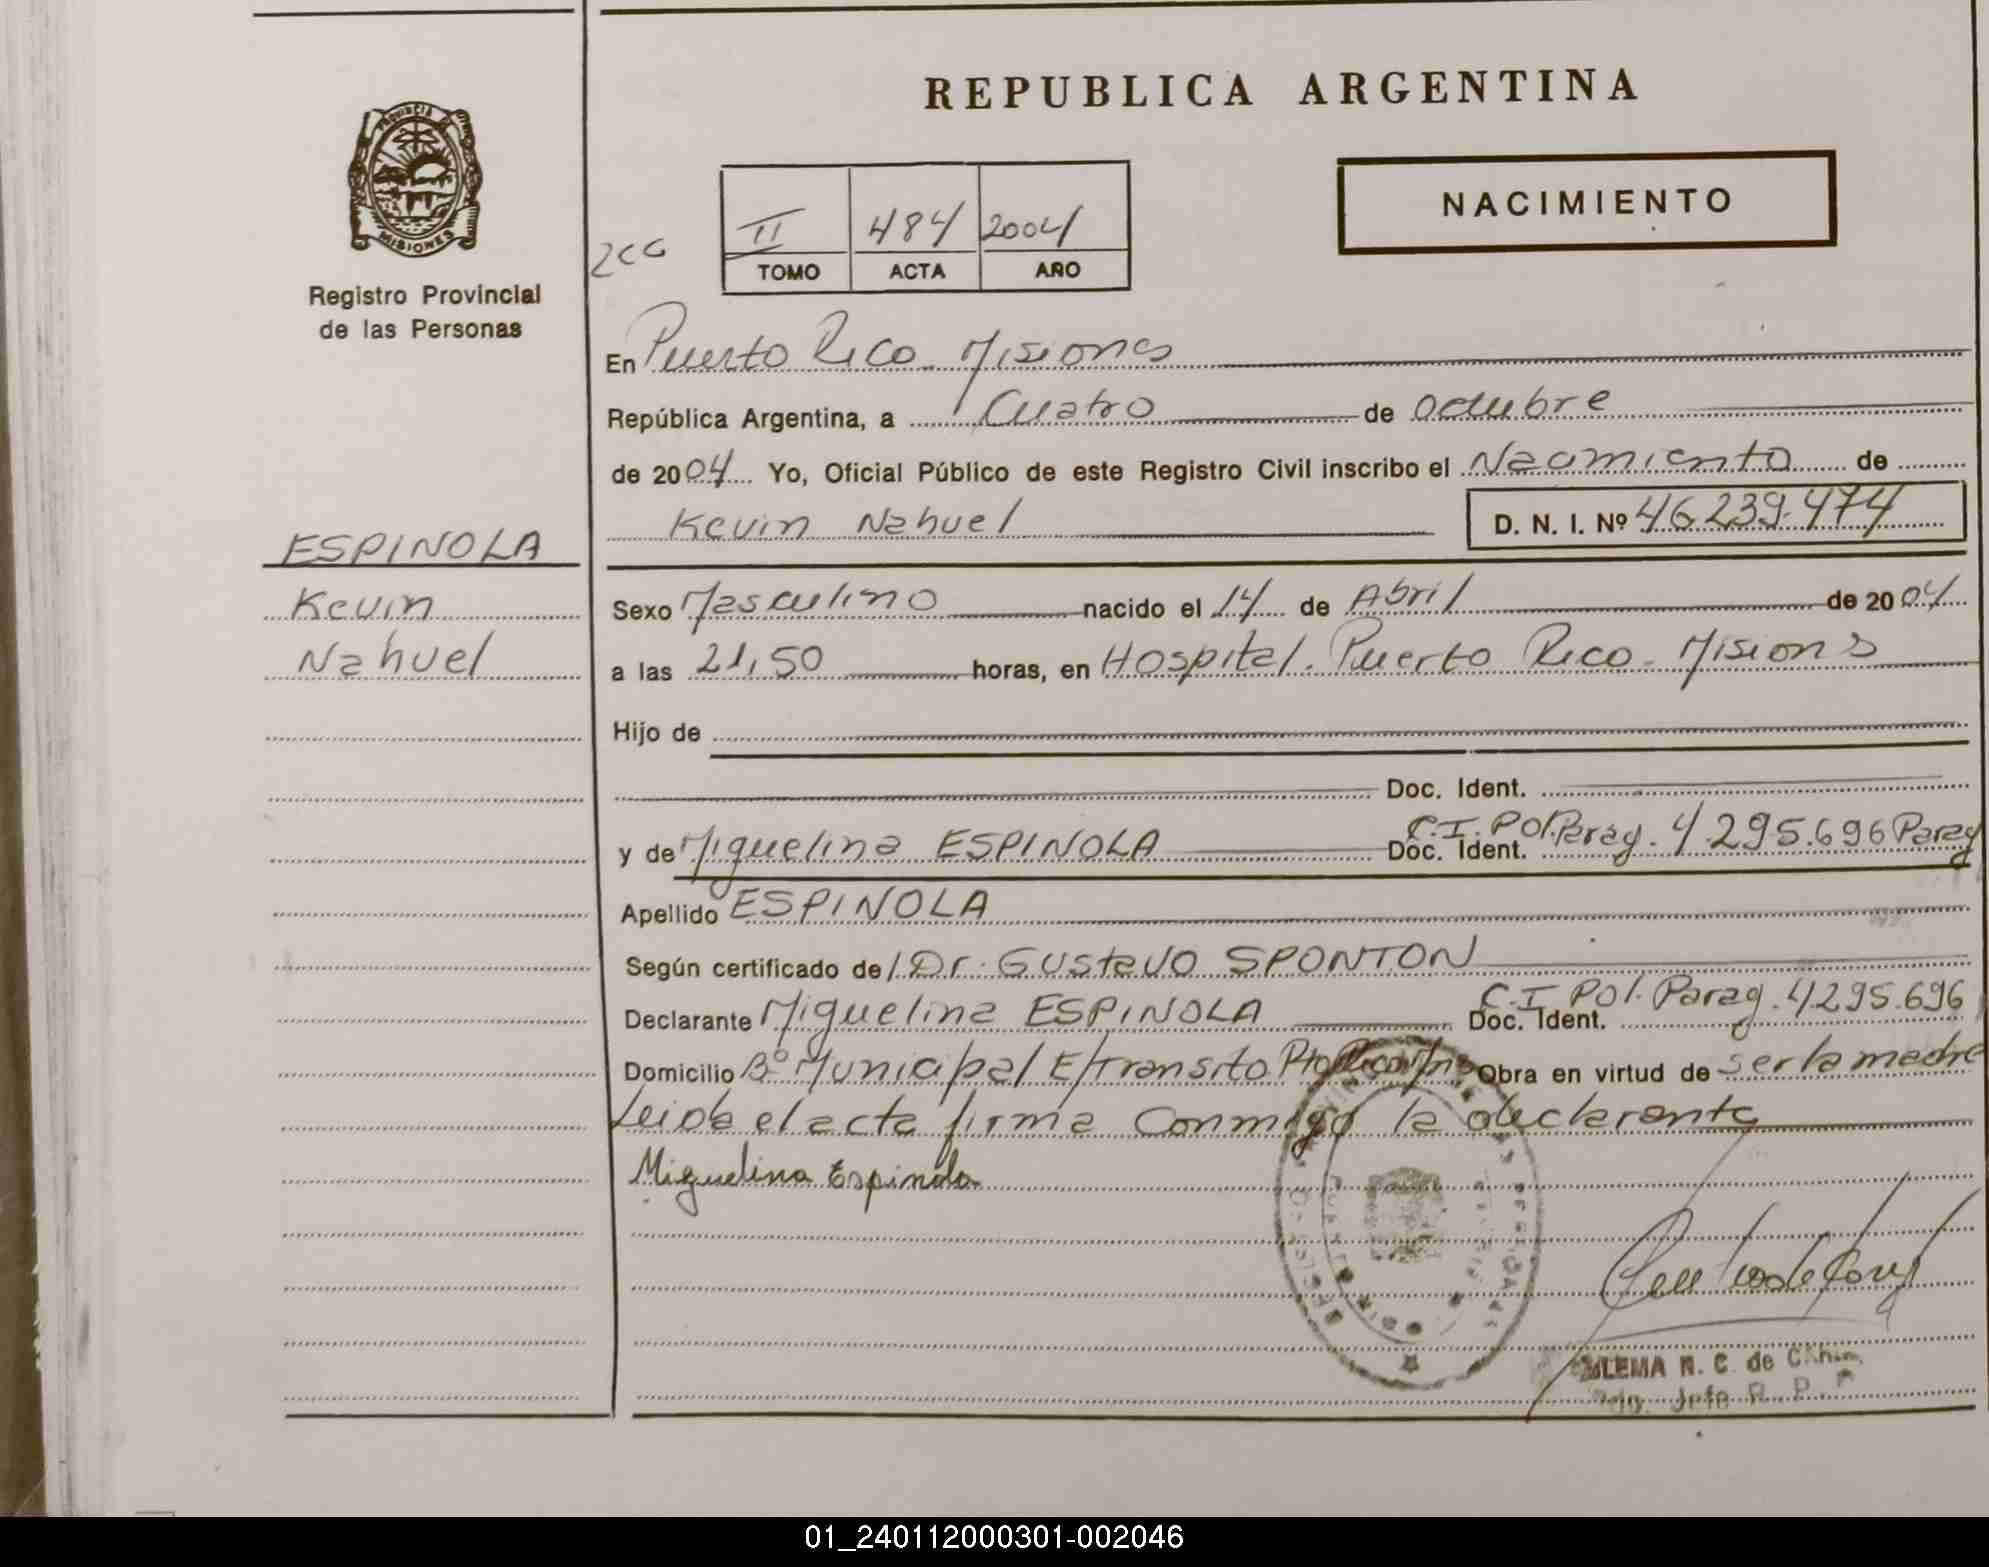 REPUBLICA ARGENTINA
PROVINCIA DE
MISIONES
Registro Provincial
de las Personas
NACIMIENTO
II 484 2004
TOMO ACTA AÑO
En Puerto Rico - Misiones
República Argentina, a Cuatro de octubre
de 2004 Yo, Oficial Público de este Registro Civil inscribo el Nacimiento de
Kevin Nahuel D. N. I. Nº 46.239.474
ESPINOLA
Kevin
Nahuel
Sexo Masculino nacido el 14 de Abril de 2004
a las 21,50 horas, en Hospital. Puerto Rico - Misions
Hijo de
Doc. Ident.
y de Miguelina ESPINOLA Doc. Ident. C.I. Pol. Parag. 4.295.696 Parag
Apellido ESPINOLA
Según certificado de Dr. Gustavo SPONTON
Declarante Miguelina ESPINOLA Doc. Ident. C.I Pol. Parag. 4295.696
Domicilio Bº Municipal E/transito Pto Rico Mnes Obra en virtud de ser la madre
Leida el acta firma conmigo la declarante
Miguelina Espinola
N. C. de
Jefe R. P.
01_240112000301-002046